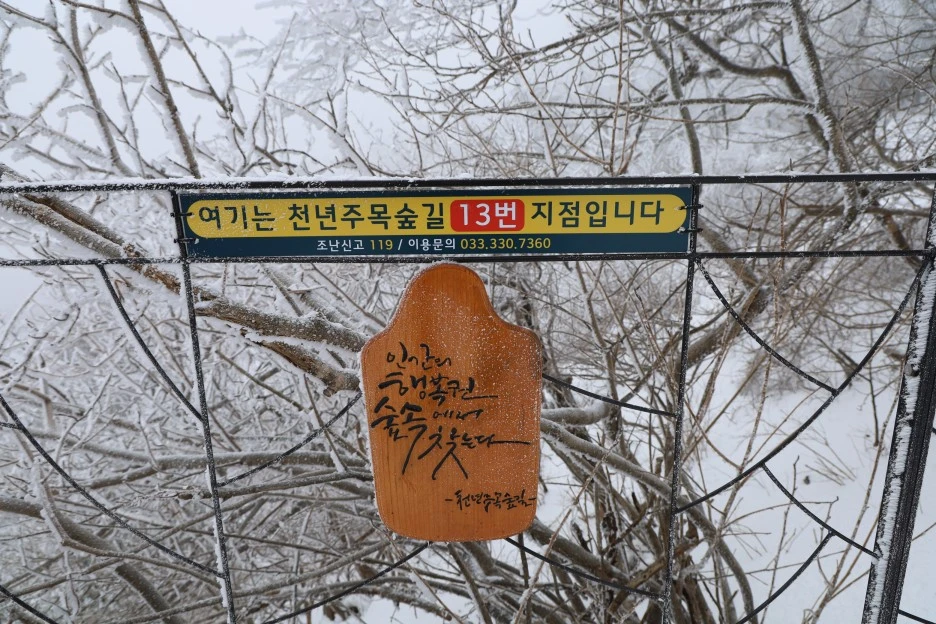 여기는 천년주목숲길 13번 지점입니다
조난신고 119 / 이용문의 033.330.7360
인간의
행복권
숲속에서
찾는다
-천년주목숲길-